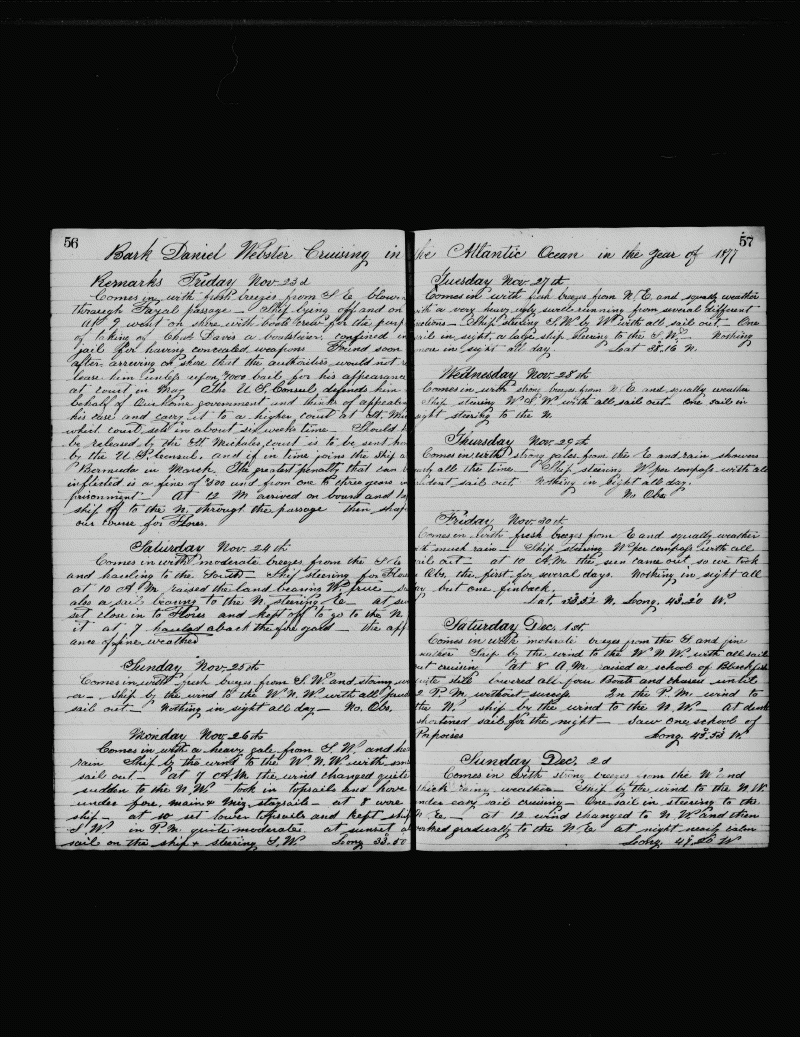 56
Bark Daniel Webster Cruising in
Remarks Friday Nov. 23d
Comes in with fresh breezes from S E blowing
through Fayal passage – Ship lying off and on
at 7 went on shore with boats crew for the purp
of taking of Chas Davis a boatsteerer confined in
jail for having concealed weapons Found soon
after arriving on shore that the authorities would not re
lease him unless upon 3000 bail for his appearance
at court in May. The U.S. Consul defends him in
behalf of Our Home government and thinks of appealing
his case and carry it to a higher court at St. Mic
which court sets in about six weeks time – Should h
be released by the St Michales court is to be sent ho
by the U.S. Consul, and if in time joins the ship a
Bermuda in March. The greatest penalty that can b
inflicted is a fine of 300 and from one to three years im
prisonment – At 12 M arrived on board and kep
ship off to the N. through the passage then shap
our course for Flores.
Saturday Nov. 24th
Comes in with moderate breezes from the S E
and hauling to the South – Ship steering for Flores
at 10 A M. raised the land bearing W. true – saw
also a sail bearing to the N. steering E – at sun
set close in to Flores and kept off to go to the N.
it at 7 hauled aback the fore yard – the app
ance of fine weather
Sunday Nov. 25th
Comes in with fresh breezes from S. W. and strong in
a – Ship by the wind to the W. N. W. with all
sail out – Nothing in sight all day – No. Obs.
Monday Nov 26th
Comes in with a heavy gale from S. W. and he
rain Ship by the wind to the W N. W. with sm
sail out – at 7 A M. the wind changed quite
sudden to the N. W – took in topsails and hove
under fore, main & Miz staysails – at 8 wore
ship – at 10 set lower topsails and kept ship
S. W. in P.M. quite moderate. at sunset a
sail on the ship & steering S. W. Long 33.50
57
he Atlantic Ocean in the Year of 1877
Tuesday Nov. 27th
Comes in with fresh breezes from N E. and squally weather
with a very heavy ugly swell running from several different
rections – Ship steering S. W. by W. with all sail out – One
sail in sight, a large ship steering to the S. W. – Nothing
more in sight all day – Lat 38.16 N.
Wednesday Nov. 28th
Comes in with strong breezes from N E. and squally weather
Ship steering W S. W. with all sail out – One sail in
sight steering to the N.
Thursday Nov. 29th
Comes in with strong gales from the E and rain showers
nearly all the time – Ship steering W per compass with all
prudent sail out – Nothing in sight all day.
No Obs.
Friday Nov. 30th
Comes in with fresh breezes from E and squally weather
with much rain – Ship steering W per compass with all
sail out – at 10 A.M. the sun came out so we took
Obs, the first for several days. Nothing in sight all
day but one finback.
Lat. 33.52 N. Long. 43.20 W.
Saturday Dec. 1st.
Comes in with moderate breezes from the and fine
weather Ship by the wind to the W N. W. with all sail
out cruising At 8 A.M. raised a school of Blackfish
quite still lowered all four Boats and chased until
2 P.M. without success In the P.M. wind to
the N. ship by the wind to the N. W. – At dark
shortened sail for the night – Saw one school of
Porpoises Long. 43.53 W.
Sunday Dec. 2d
Comes in with strong breezes from the W and
thick rainy weather – Ship by the wind to the N W
under easy sail cruising – One sail in steering to the
N E. – at 12 wind changed to N. W and then
worked gradually to the N E at night nearly calm
Long. 43.20 W